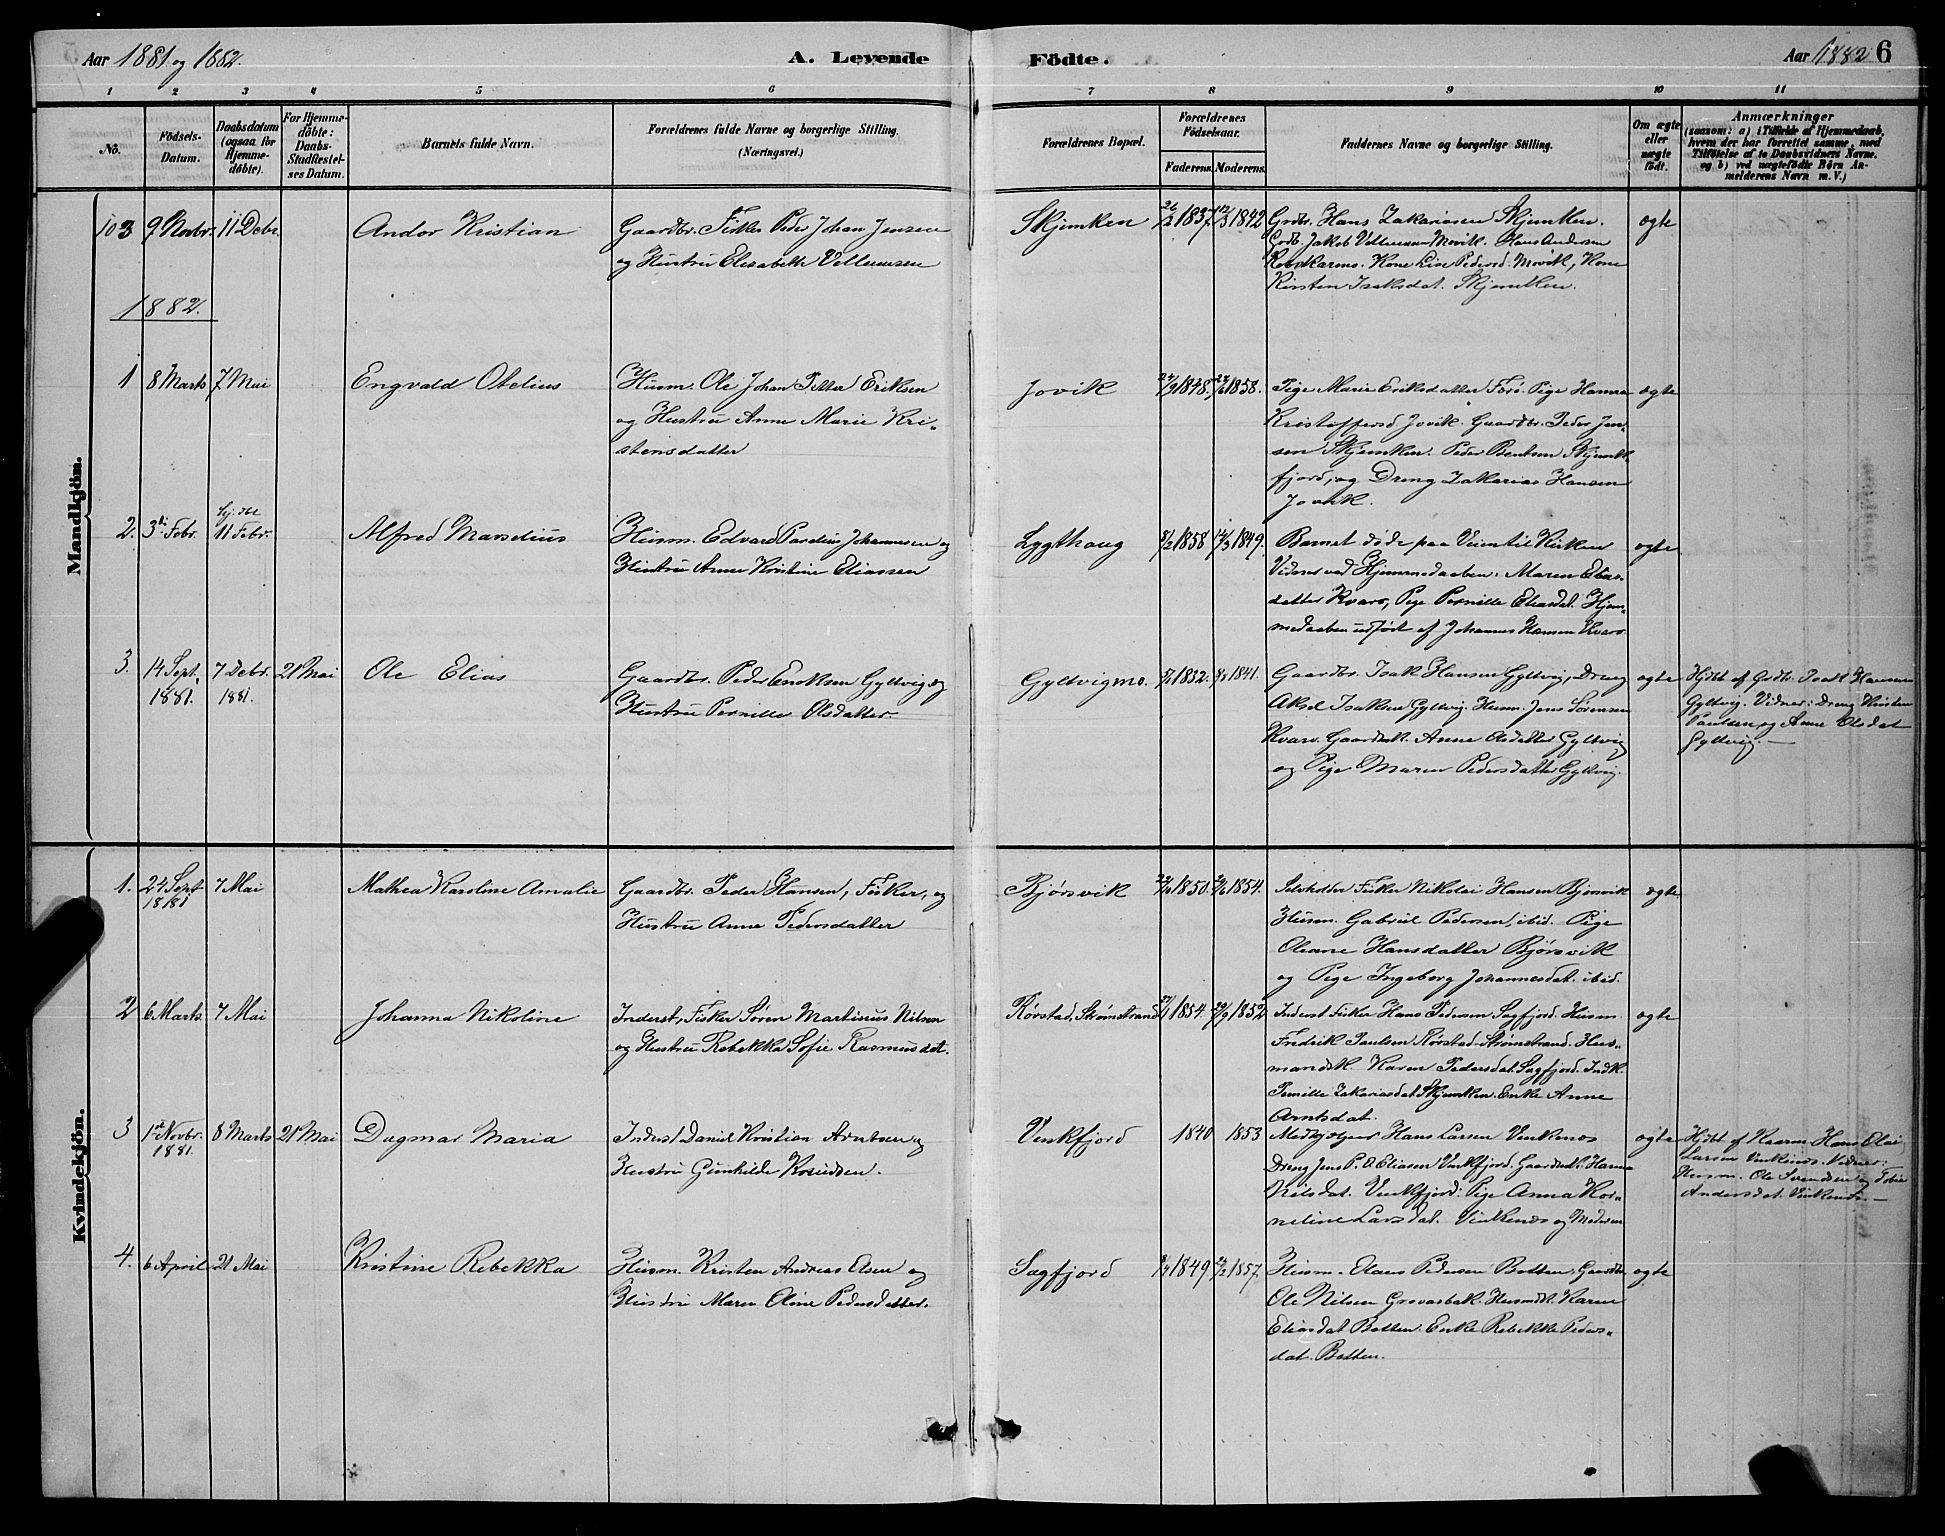 Aar 1881 og 1882.
A. Levende
Födte.
Aar 1882
6
1 2 3 4 5 6 7 8 9 10 11
No.
Födsels-
Datum.
Daabsdatum
(ogsaa for
Hjemme-
döbte).
For Hjemme-
döbte:
Daabs-
Stadfæstel-
ses Datum.
Barnets fulde Navn.
Forældrenes fulde Navne og borgerlige Stilling.
(Næringsvei.)
Forældrenes Bopæl.
Forældrenes
Födselsaar.
Faderens. Moderens.
Faddernes Navne og borgerlige Stilling.
Om ægte
eller
uægte
födt.
Anmærkninger
(saasom: a) i Tilfælde af Hjemmedaab,
hvem der har forrettet samme, med
Tilföielse af to Daabsvidners Navne,
og b) ved uægtefödte Börn An-
melderens Navn m. V.)
Mandkjön.
9 Novbr. 11 Debr. Andor Kristian
Gaardbr. Fisker Peder Johan Jensen
og Hustru Elisabeth Vellumsen
Skjemken 26/2 1837 1842
Grdbr. Hans Zakariasen Skjemken.
Grdb. Jakob Vellumsen Movik. Hans Andersen
Kone Lise Pedersd. Movik, Kone
Kirsten Isaksdat. Skjemken.
ægte
1882.
1 8 Marts 7 Mai Engvald Otelius
Husm. Ole Johan Petter Eriksen
og Hustru Anne Marie Kri-
stensdatter
Jovik 1848. 1858.
Pige Marie Eriksdatter Forö. Pige Hanna
Kristoffersd Jovik. Gaardbr. Peder Jen-
sen Skjemken. Peder Bentsen Skjemk-
fjord, og Dreng Zakarias Hansen
Jovik.
ægte
2. 3die Febr. Hj. dbt 11 Febr. Alfred Marselius
Husm. Edvard Parelius Johannesen og
Hustru Anne Kristine Eliassen
Lygthaug 8/2 1858 12/3 1849.
Barnet döde paa Veien til Kirken
Vidner ved Hjemmedaaben: Maren Elias-
datter Kvarv, Pige Pernille Eliasdat. Hjem-
medaaben udfört af Johannes Hansen Kvarv
ægte
3. 14 Sept. 1881. 7 Debr. 1881. 21 Mai Ole Elias
Gaardbr. Peder Enoksen Gyltvig og
Hustru Pernille Olsdatter
Gyltvigmo. 1832. 1841.
Gaardbr. Isak Hansen Gyltvig, Dreng
Aksel Isaksen Gyltvig. Husm. Jens Sørensen
Kvarv. Gaardmk. Anne Olsdatter Gyltvig
og Pige Maren Pedersdatter Gyltvig.
ægte
Hjdbt af Grdbr. Isak Hansen
Gyltvig. Vidner: Dreng Kristen
Paulsen og Anne Olsdat
Gyltvig. —
Kvindekjön.
1. 24 Sept 1881 7 Mai Mathea Karoline Amalie
Gaardbr. Peder Hansen, Fisker, og
Hustru Anne Pedersdatter
Bjørsvik 1850. 1854.
Fisker Nikolai Hansen Bjørsvik
Husm. Gabriel Pedersen, ibid. Pige
Oleane Hansdatter Bjørsvik
og Pige Ingeborg Johannesdat. ibid.
ægte
2 6 Marts 7 Mai Johanna Nikoline
Inderst, Fisker Søren Martinus Nilsen
og Hustru Rebekka Sofie Rasmusdat.
Rørstad, Strømstrand 1854. 29/9 1852
Inderst Fisker Hans Pedersen Sagfjord. Husm.
Fredrik Paulsen Rørstad-Strømstrand. Hus-
mandsk. Karen Pedersdat. Sagfjord. Indk.
Pernille Zakariasdat Skjemken. Enke Anne
Arntsdat.
ægte
3 1st Novbr. 1881. 8 Marts 21 Mai Dagmar Maria
Inderst Daniel Kristian Arntsen og
Hustru Gunhilde Knudsen.
Vinkfjord 1840 1853
Medhjælper Hans Larsen Vinkenes
Dreng Jens P. O. Eliasen Vinkfjord. Gaardmk. Hanna
Nilsdat. Vinkfjord. Pige Anna Kor-
neline Larsdat. Vinkenes og Moderen
ægte
Hjdbt af Hans Olai
Larsen Vinkenes. Vidner:
Husm. Ole Svendsen og
Andersdat. Vinkenes —
4. 6 April 21 Mai Kristine Rebekka
Husm. Kristen Andreas Olsen og
Hustru Maren Oline Pedersdatter.
Sagfjord 1849 1857.
Husm. Claus Pedersen Botten, Gaardbr.
Ole Nilsen Grovasbak. Husmdk. Karen
Eliasdat Botten. Enke Rebekka Peders-
dat. Botten.
ægte